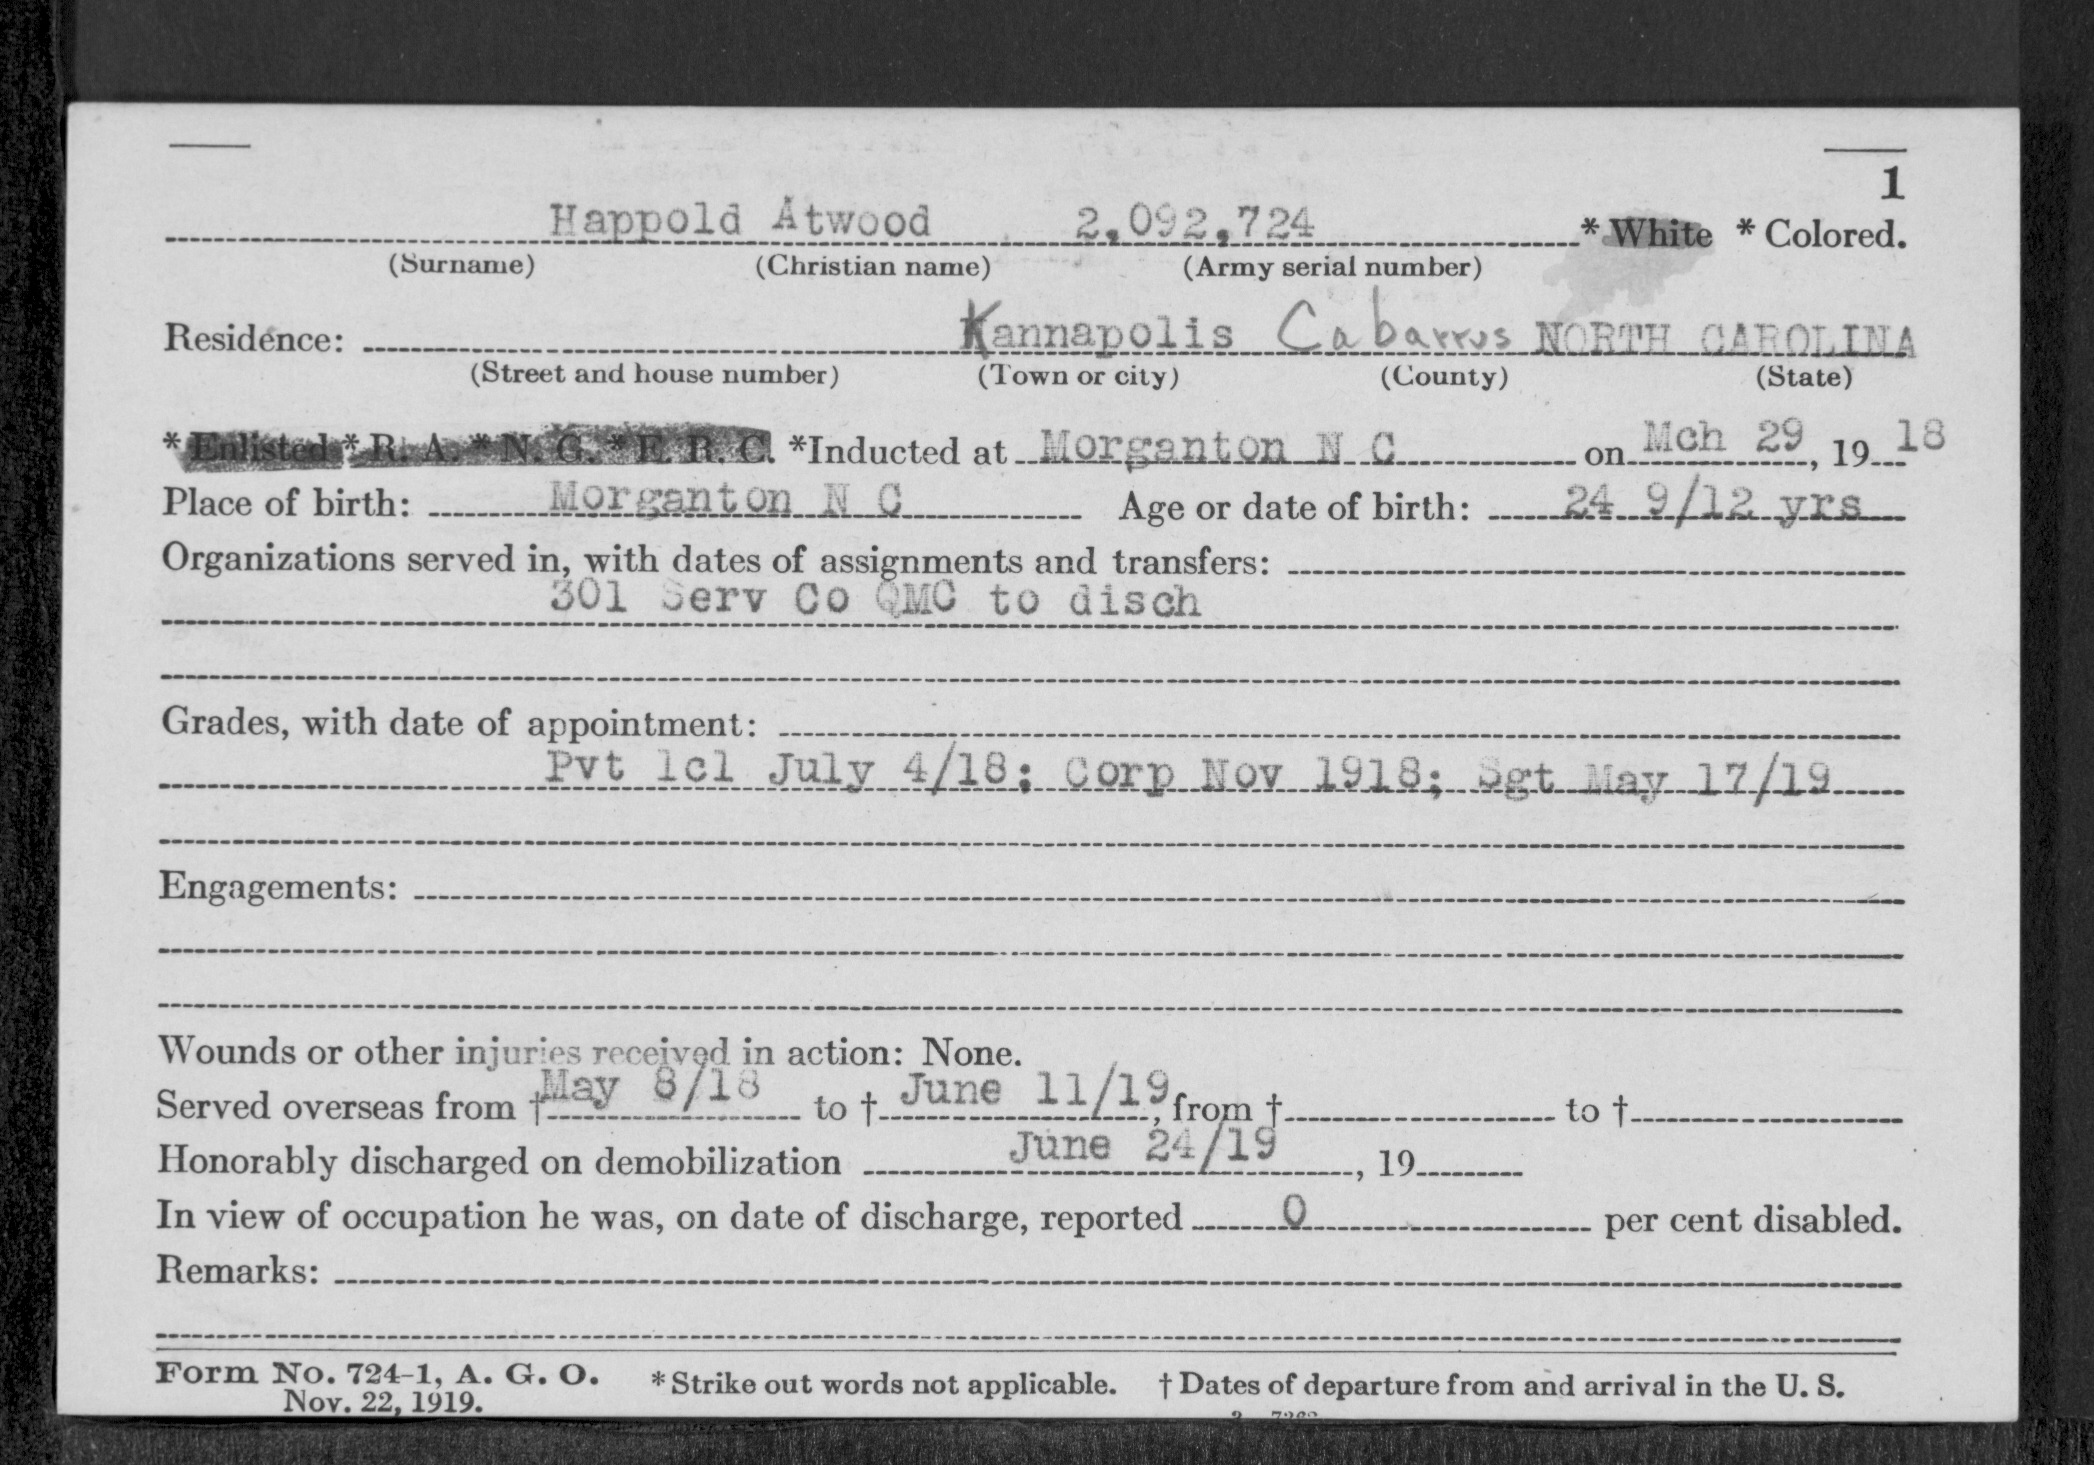 1
Happold Atwood 2,092,724 * White * Colored.
(Surname) (Christian name) (Army serial number)
Residence: Kannapolis Cabarrus NORTH CAROLINA
(Street and house number) (Town or city) (County) (State)
* Enlisted * R. A. * N. G. * E. R. C. *Inducted at Morganton N C on Mch 29, 19 18
Place of birth: Morganton N C Age or date of birth: 24 9/12 yrs
Organizations served in, with dates of assignments and transfers:
301 Serv Co QMC to disch
Grades, with date of appointment:
Pvt 1cl July 4/18; Corp Nov 1918; Sgt May 17/19
Engagements:
Wounds or other injuries received in action: None.
Served overseas from † May 8/18 to † June 11/19, from † to †
Honorably discharged on demobilization June 24/19, 19
In view of occupation he was, on date of discharge, reported 0 per cent disabled.
Remarks:
Form No. 724-1, A. G. O. * Strike out words not applicable. † Dates of departure from and arrival in the U. S.
Nov. 22, 1919.